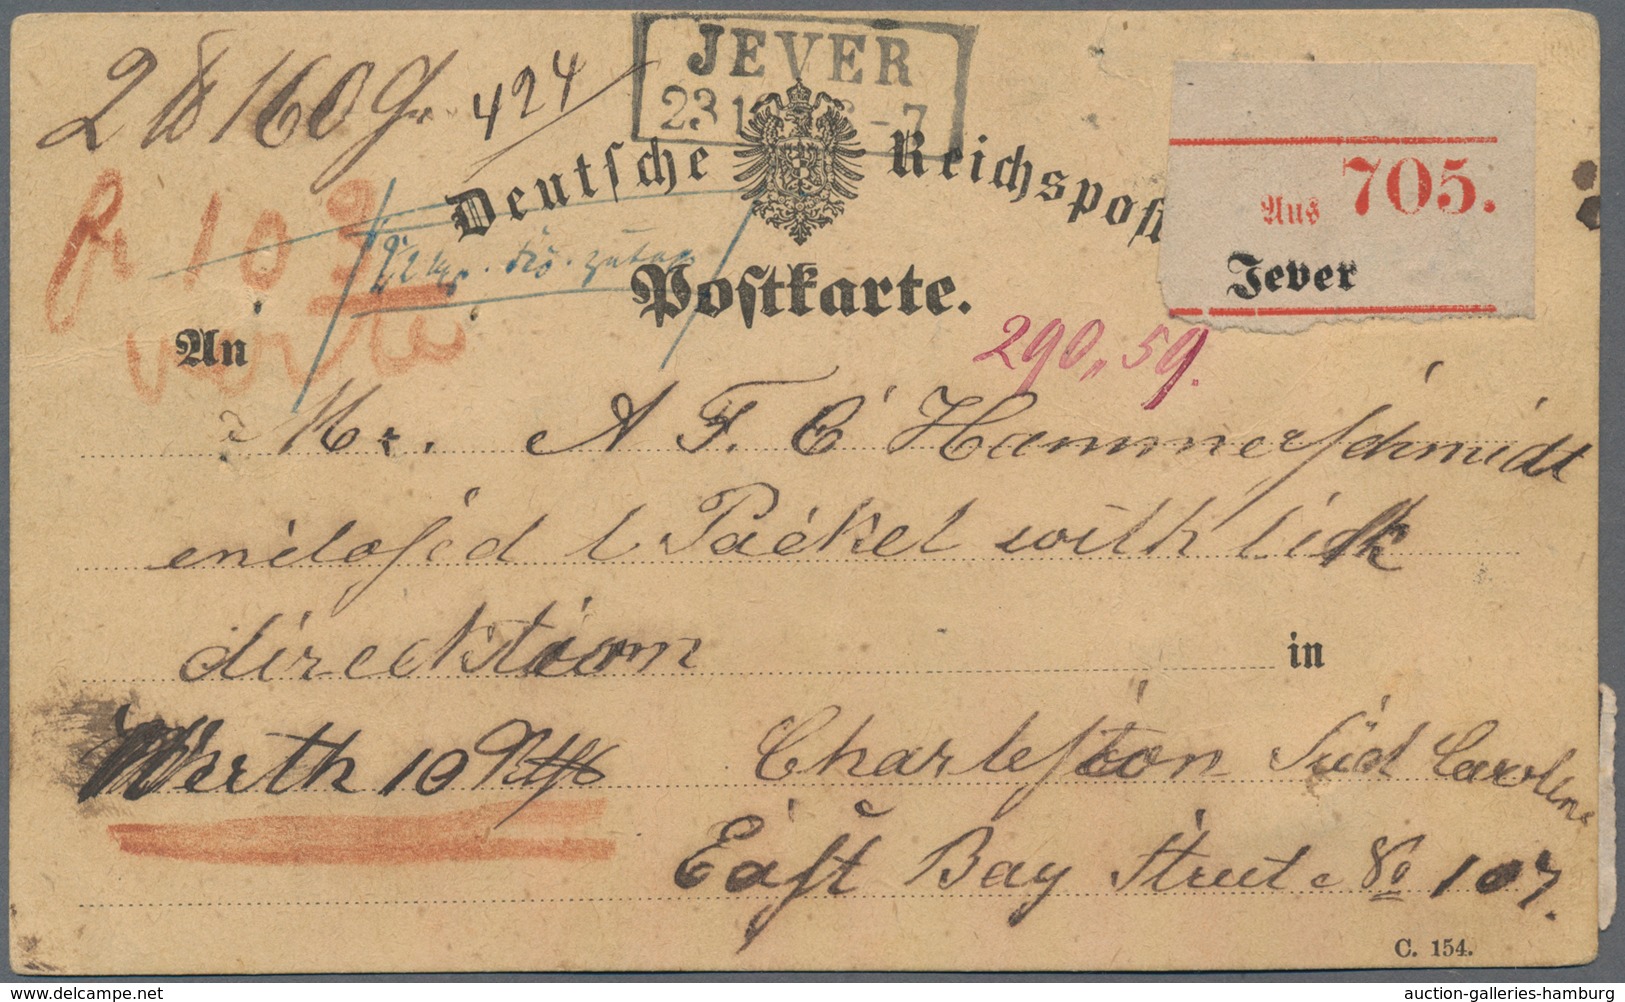 JEVER
23 1 -7
2 ℔ 160 Gr. 424
Deutsche Reichspost
Aus 705.
Jever
fr 10 9
Postkarte.
290,, 59.
An
Mr. A F. C Hammerschmidt
enclosed 1 Packet with lick
direcktion
in
Werth 10 Charleston Süd Caroline
East Bay Street No 107.
C. 154.
auction-galleries-hamburg